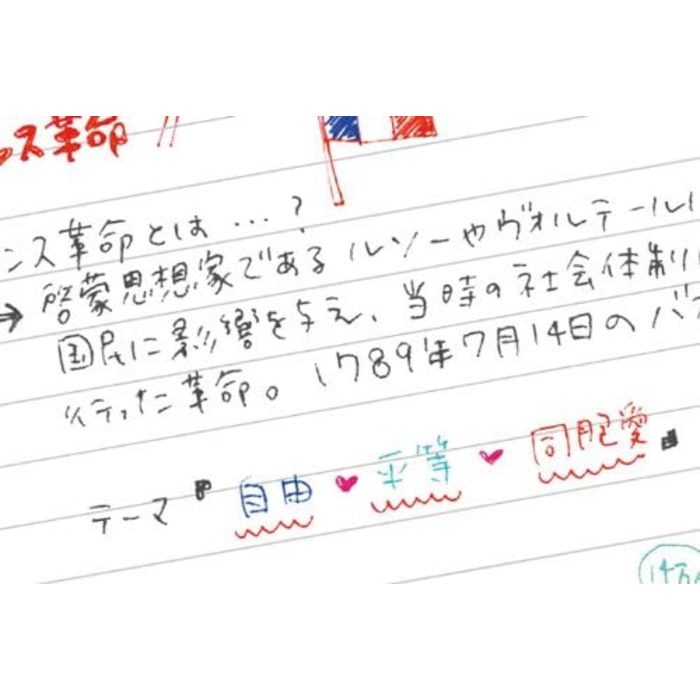 ンス革命 !!
ンス革命とは…?
→ 啓蒙思想家であるルソーやヴォルテール
国民に影響を与え、当時の社会体制
行った革命。1789年7月14日のバ
テーマ『自由♥平等♥同胞愛』